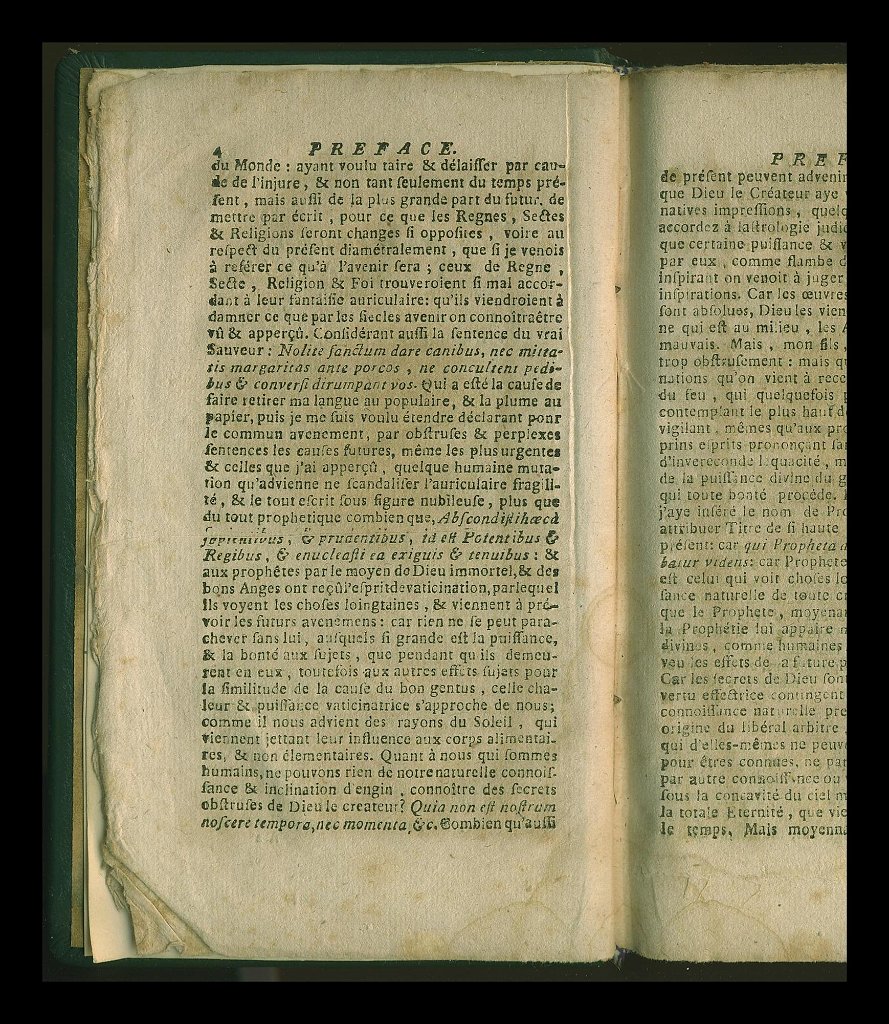 4 PREFACE.
du Monde : ayant voulu taire & délaiſſer par cau-
ſe de l'injure, & non tant ſeulement du temps pré-
ſent, mais auſſi de la plus grande part du futur, de
mettre par écrit, pour ce que les Regnes, Sectes
& Religions feront changes ſi oppoſites, voire au
reſpect du préſent diamétralement, que ſi je venois
à reférer ce qu'à l'avenir ſera ; ceux de Regne,
Secte, Religion & Foi trouveroient ſi mal accor-
dant à leur fantaiſie auriculaire: qu'ils viendroient à
damner ce que par les ſiecles avenir on connoîtraêtre
vû & apperçû. Conſidérant auſſi la ſentence du vrai
Sauveur : Nolite ſanctum dare canibus, nec mitta-
tis margaritas ante porcos, ne conculient pedi-
bus & converſi dirumpant vos. Qui a eſté la cauſe de
faire retirer ma langue au populaire, & la plume au
papier, puis je me ſuis voulu étendre déclarant ponr
le commun avenement, par obſtruſes & perplexes
ſentences les cauſes futures, même les plus urgentes
& celles que j'ai apperçû, quelque humaine muta-
tion qu'advienne ne ſcandaliſer l'auriculaire fragili-
té, & le tout eſcrit ſous figure nubileuſe, plus que
du tout prophetique combien que, Abſcondiſti hæc à
ſapientibus, & prudentibus, id eſt Potentibus &
Regibus, & enucleaſti ea exiguis & tenuibus : &
aux prophêtes par le moyen de Dieu immortel, & des
bons Anges ont reçûl'eſpritdevaticination, parlequel
ils voyent les choſes loingtaines, & viennent à pré-
voir les futurs avenemens : car rien ne ſe peut para-
chever ſans lui, auſquels ſi grande eſt la puiſſance,
& la bonté aux ſujets, que pendant qu'ils demeu-
rent en eux, toutefois aux autres effets ſujets pour
la ſimilitude de la cauſe du bon gentus, celle cha-
leur & puiſſance vaticinatrice s'approche de nous;
comme il nous advient des rayons du Soleil, qui
viennent jettant leur influence aux corps alimentai-
res, & non élementaires. Quant à nous qui ſommes
humains, ne pouvons rien de notre naturelle connoiſ-
ſance & inclination d'engin, connoître des ſecrets
obſtruſes de Dieu le createur? Quia non eſt noſtrum
noſcere tempora, nec momenta, &c. Combien qu'auſſi
PREF
de préſent peuvent advenir
que Dieu le Créateur aye
natives impreſſions, quelq
accordez à laſtrologie judic
que certaine puiſſance & v
par eux, comme flambe d
inſpirant on venoit à juger
inſpirations. Car les œuvres
ſont abſolues, Dieu les vien
ne qui eſt au milieu, les A
mauvais. Mais, mon fils,
trop obſtruſement : mais qu
nations qu'on vient à rece
du feu, qui quelquefois p
contemplant le plus haut d
vigilant, mêmes qu'aux pro
prins eſprits prononçant ſan
d'invereconde loquacité, m
de la puiſſance divine du g
qui toute bonté procède.
j'aye inſéré le nom de Pro
attribuer Titre de ſi haute
préſent: car qui Propheta
batur videns: car Prophete
eſt celui qui voit choſes lo
ſance naturelle de toute cr
que le Prophete, moyenan
la Prophétie lui appaire
divines, comme humaines
veu les effets de la future p
Car les ſecrets de Dieu ſont
vertu effectrice contingent
connoiſſance naturelle, pre
origine du libéral arbitre,
qui d'elles-mêmes ne peuv
pour êtres connues, ne par
par autre connoiſſance ou
ſous la concavité du ciel m
la totale Eternité, que vie
le temps, Mais moyenna